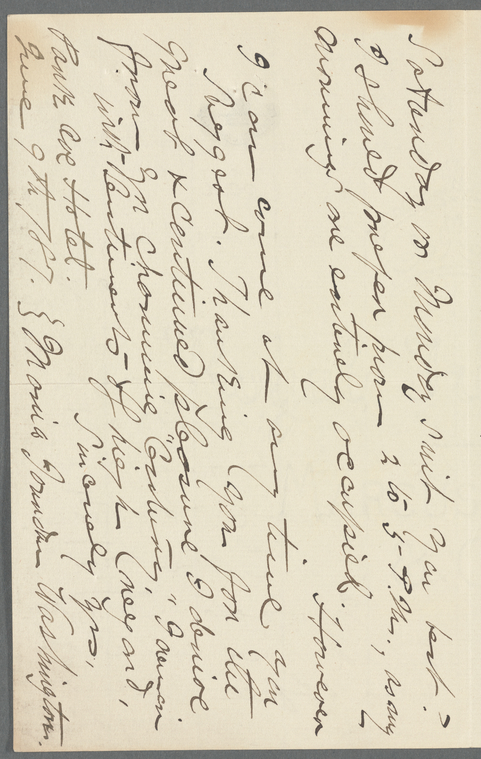 Saturday or Monday suit you best?
I should prefer from 2 to 5 P.M., as my
mornings are entirely occupied. However
I can come at any time you
suggest. Thanking you for the
great & continued pleasure I derive
from yr charming "Century," I remain
with sentiments of high regard,
Sincerely yrs,
Park Ave Hotel.
June 9th /87. } Monis Jourdan Washington.